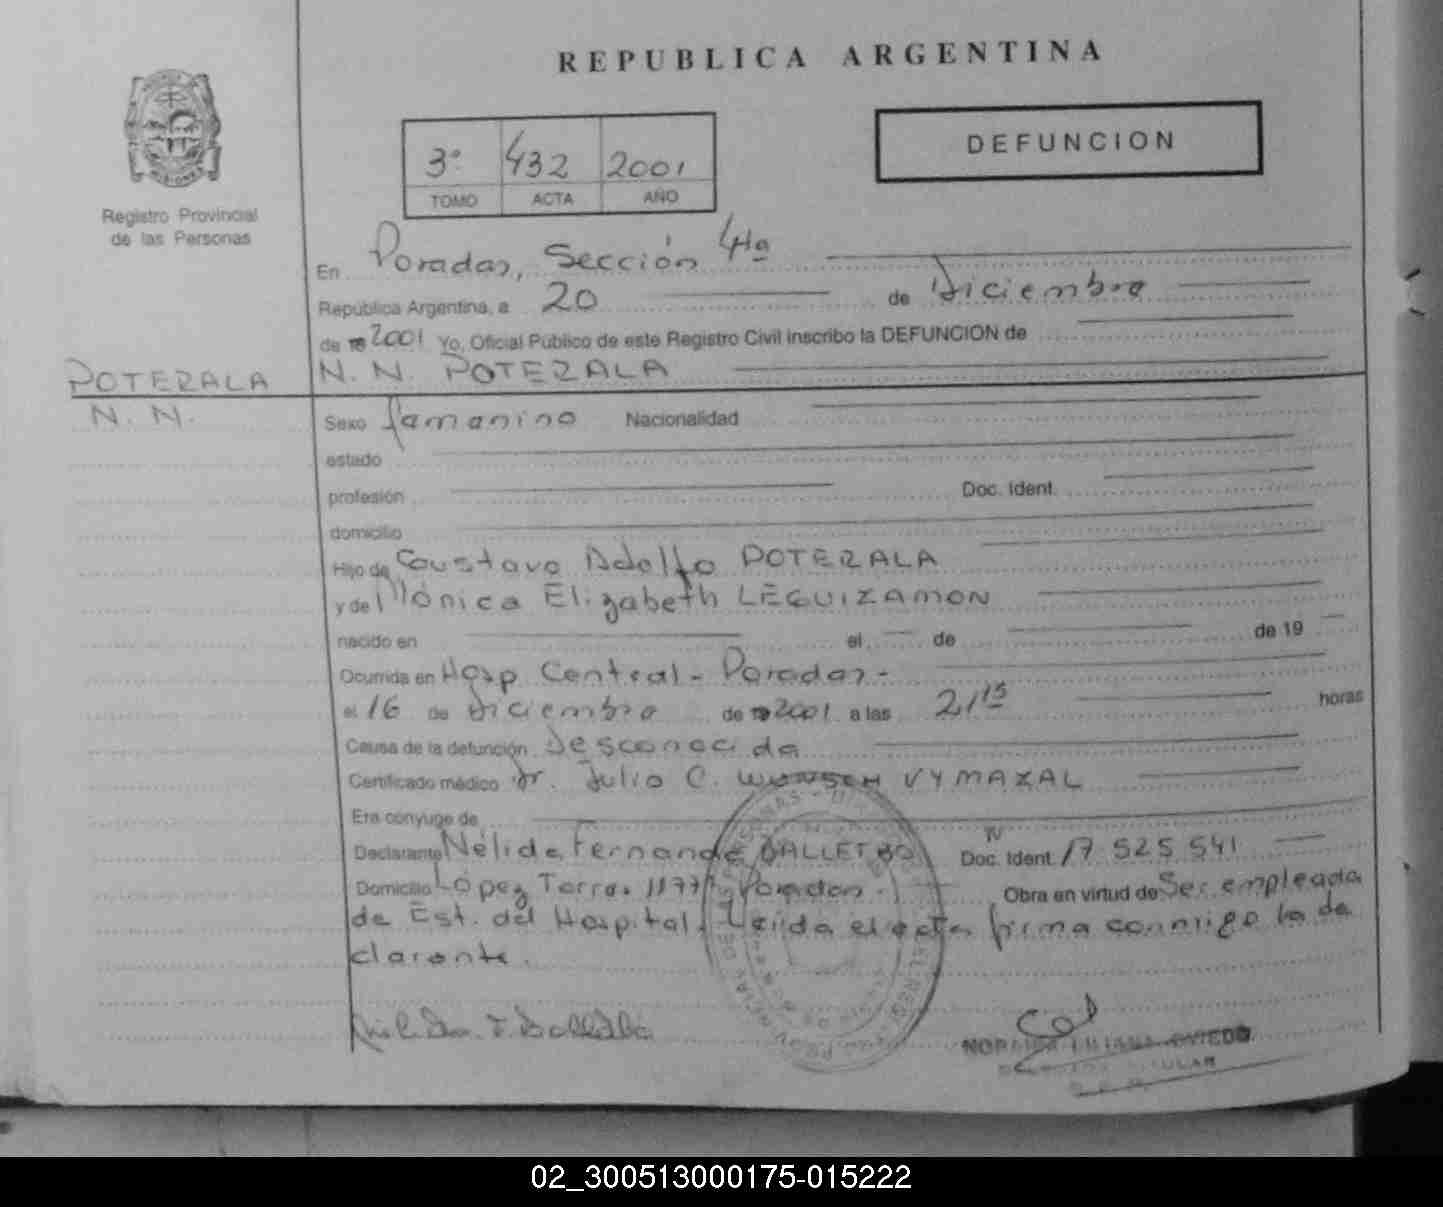 REPUBLICA ARGENTINA
DEFUNCION
3º 432 2001
TOMO ACTA AÑO
Registro Provincial
de las Personas
En Posadas, Sección 4ta
República Argentina, a 20 de Diciembre
de 19 2001 Yo, Oficial Público de este Registro Civil inscribo la DEFUNCION de
POTEZALA
N. N.
N. N. POTEZALA
Sexo femenino Nacionalidad
estado
profesión Doc. Ident.
domicilio
Hijo de Gustavo Adolfo POTEZALA
y de Mónica Elizabeth LEGUIZAMON
nacido en el de de 19
Ocurrida en Hosp. Central - Posadas -
el 16 de Diciembre de 19 2001 a las 21 15 horas
Causa de la defunción Desconocida
Certificado médico Dr. Julio C. WUNSCH VYMAZAL
Era cónyuge de
Declarante Nélida Fernanda BALLETBO Doc. Ident. 17 525 541
Domicilio López Torres 1177, Posadas. Obra en virtud de Ser empleada
de Est. del Hospital. Leída el acta, firma conmigo la de
clarante.
OVIEDO
TITULAR
02_300513000175-015222